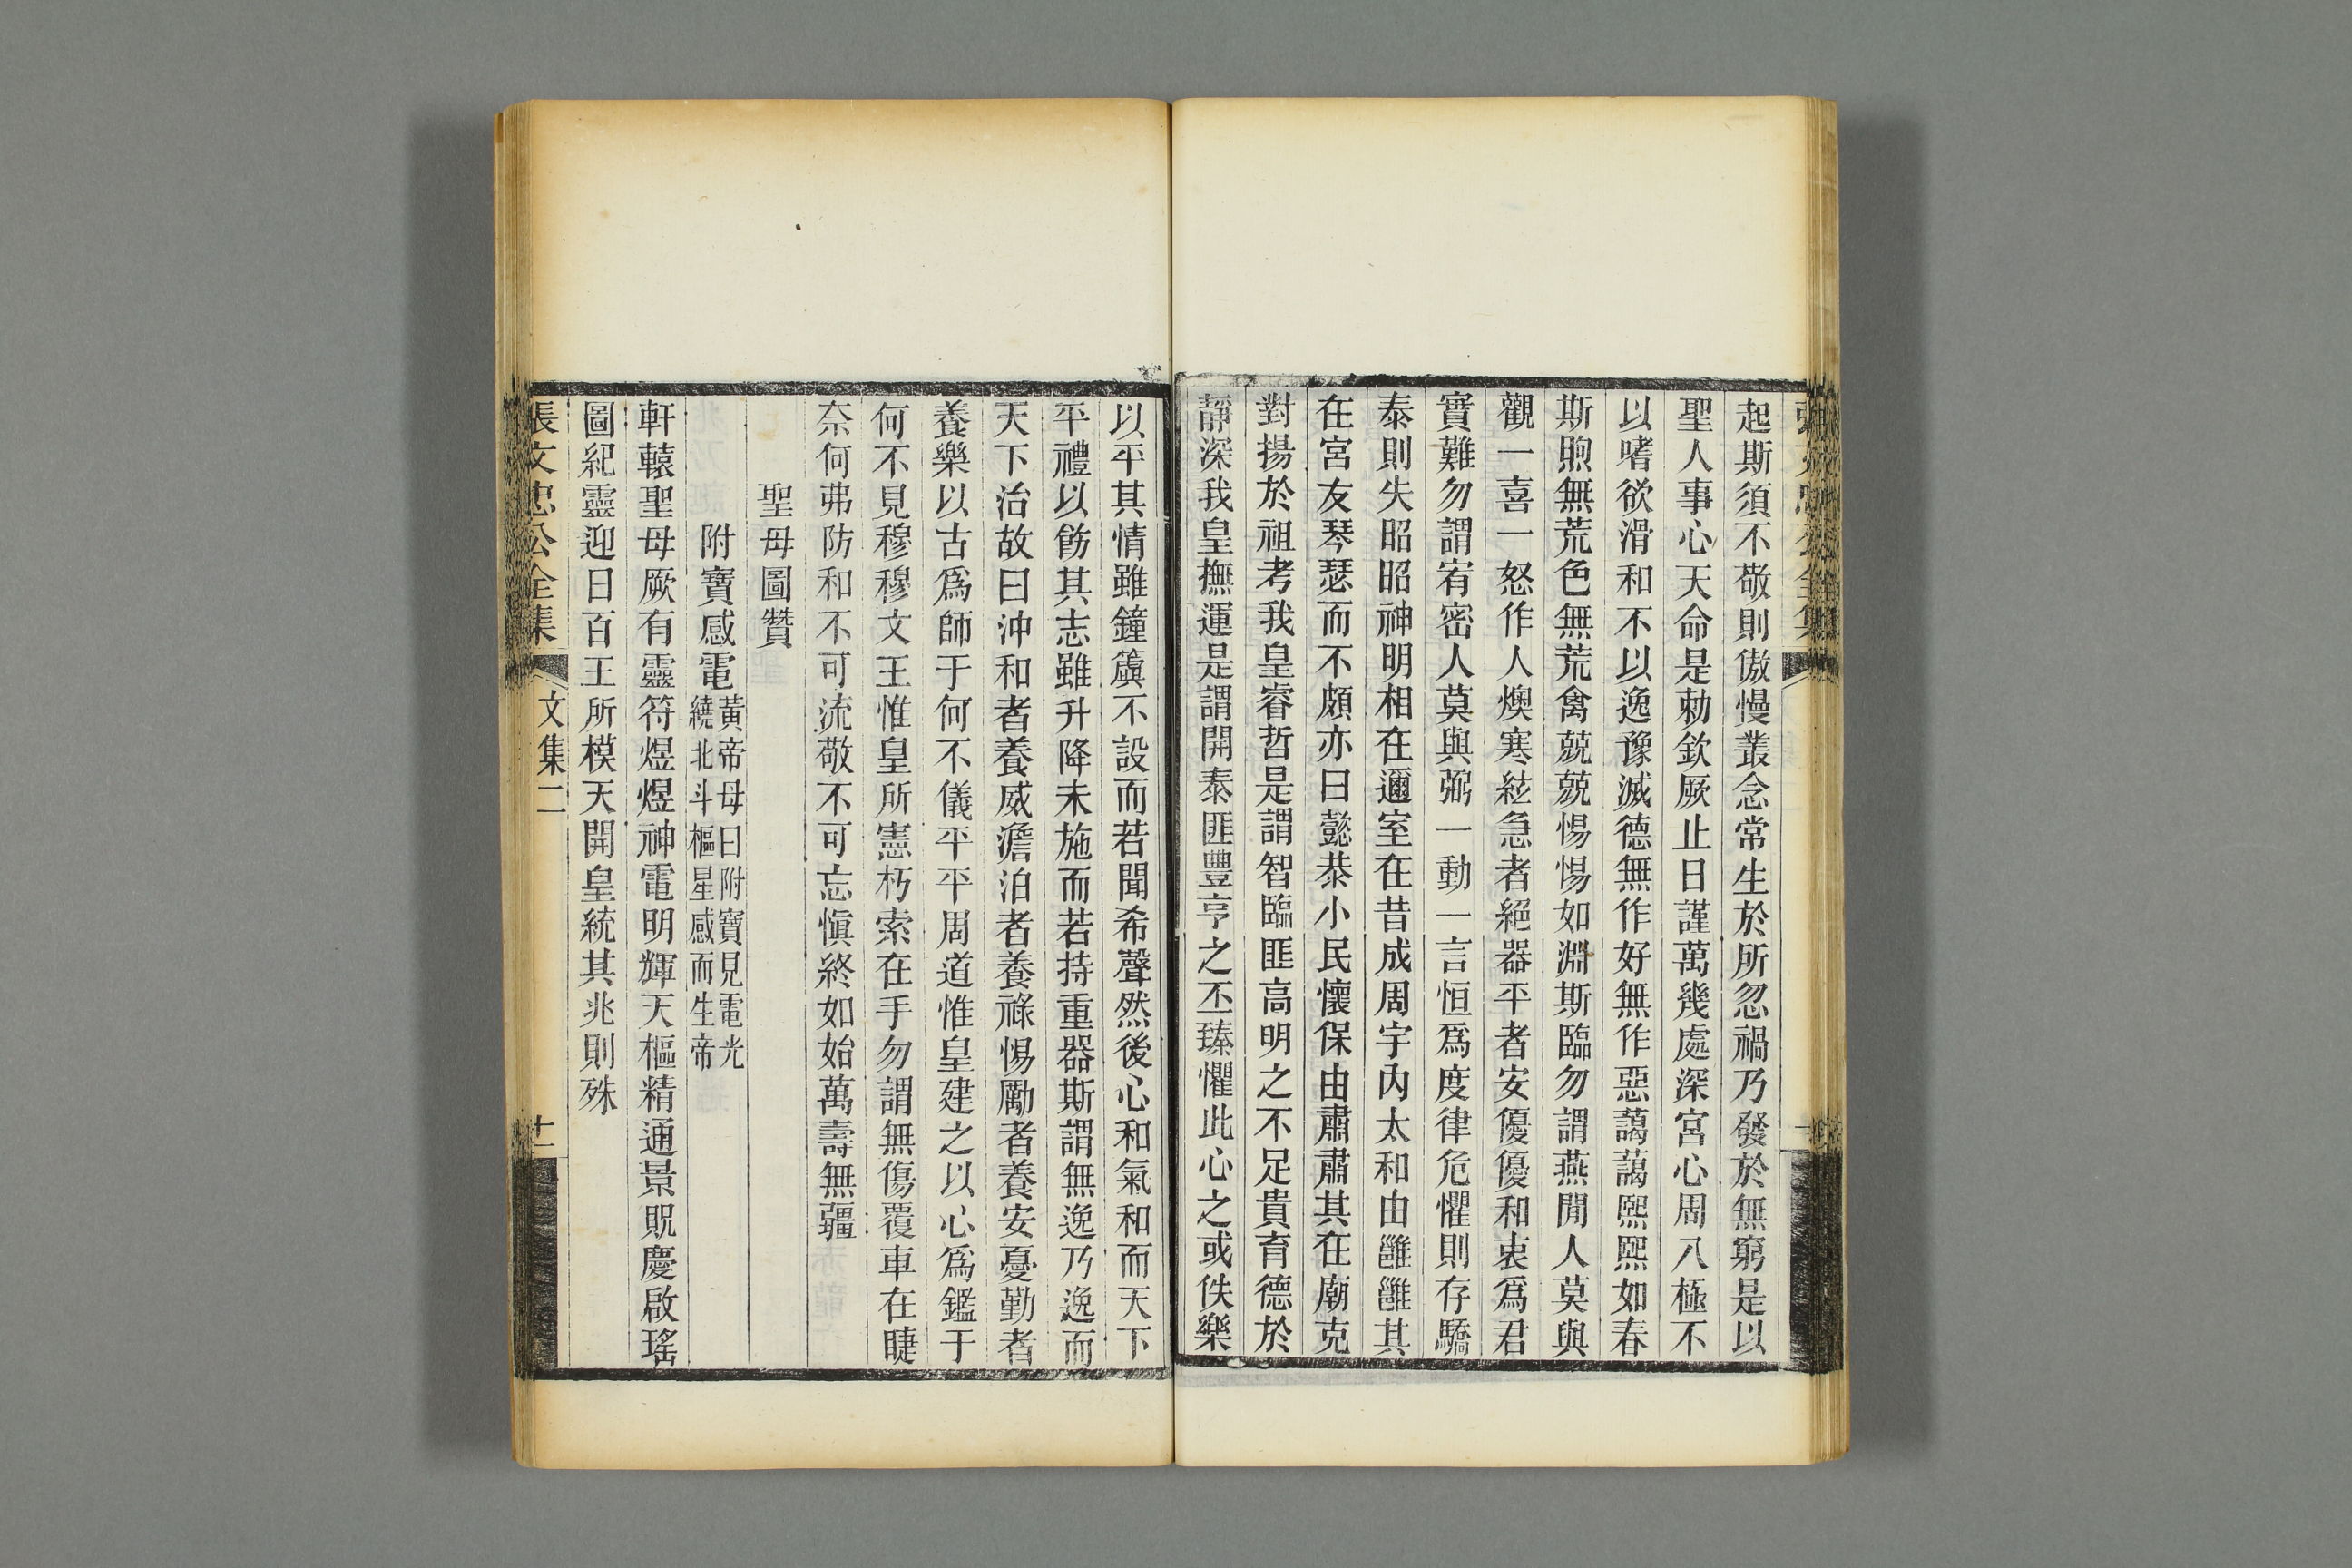 起斯須不敬則傲慢叢念常生於所忽禍乃發於無窮是以
聖人事心天命是勅欽厥止日謹萬幾處深宮心周八極不
以嗜欲滑和不以逸豫滅德無作好無作惡藹藹熙熙如春
斯煦無荒色無荒禽兢兢惕惕如淵斯臨勿謂燕閒人莫與
觀一喜一怒作人燠寒絃急者絕器平者安優優和衷爲君
實難勿謂宥密人莫與弼一動一言恒爲度律危懼則存驕
泰則失昭昭神明相在邇室在昔成周宇內太和由雝雝其
在宮友琴瑟而不頗亦曰懿恭小民懷保由肅肅其在廟克
對揚於祖考我皇睿哲是謂智臨匪高明之不足貴育德於
靜深我皇撫運是謂開泰匪豐亨之丕臻懼此心之或佚樂
以平其情雖鐘簴不設而若聞希聲然後心和氣和而天下
平禮以飭其志雖升降未施而若持重器斯謂無逸乃逸而
天下治故曰沖和者養威澹泊者養祿惕勵者養安憂勤者
養樂以古爲師于何不儀平平周道惟皇建之以心爲鑑于
何不見穆穆文王惟皇所憲朽索在手勿謂無傷覆車在睫
奈何弗防和不可流敬不可忘愼終如始萬壽無疆
聖母圖贊
附寶感電黃帝母曰附寶見電光
繞北斗樞星感而生帝
軒轅聖母厥有靈符煜煜神電明輝天樞精通景貺慶啟瑤
圖紀靈迎日百王所模天開皇統其兆則殊
張文忠公全集 文集二 十一